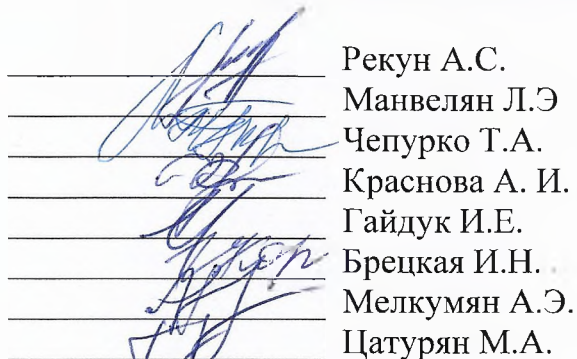 Рекун А.С.
Манвелян Л.Э
Чепурко Т.А.
Краснова А. И.
Гайдук И.Е.
Брецкая И.Н.
Мелкумян А.Э.
Цатурян М.А.